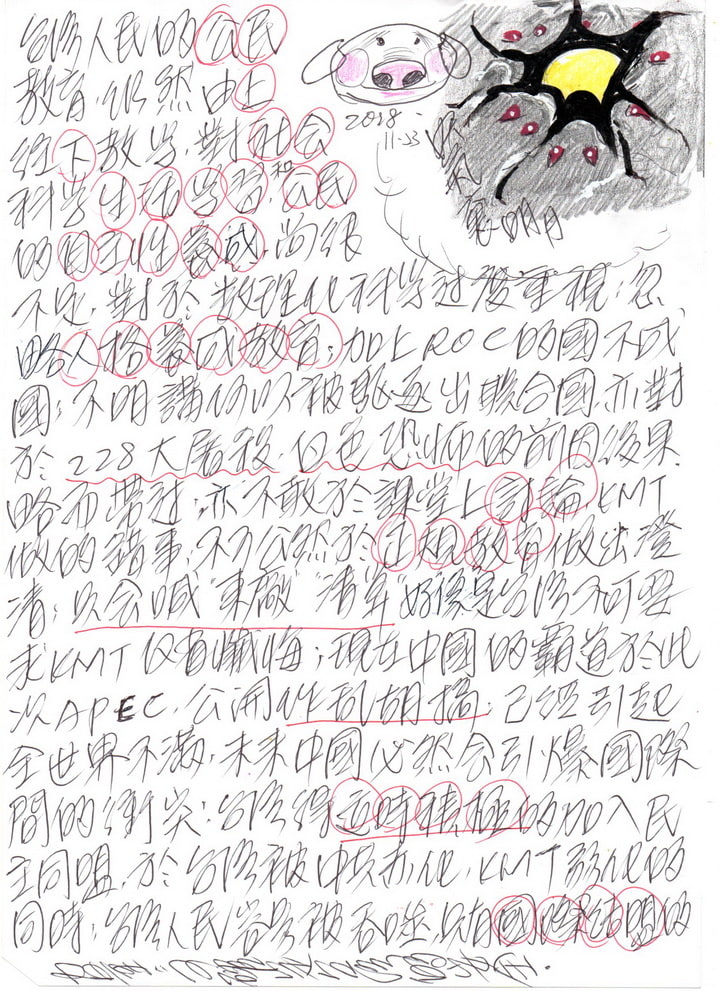 台灣人民的公民
教育,仍然由上
往下教学,對社会
科学生活学習和公民
的自主性養成,尚很
不足,對於数理化科学过度重視,忽
略人格養成教育;加上ROC的國不成
國;不明講何以被驅逐出聯合國,亦對
於228大屠殺,白色恐怖的前因後果
略而帶过,亦不敢於課堂上討論KMT
做的錯事,不公然於教育做出澄
清;只会喊"東廠""清算"好像是台灣不可要
求KMT仅有懺悔;現在中國的霸道於此
次APEC,公開作乱胡搞;已經引起
全世界不滿,未來中國必然会引爆國際
間的衝突;台灣得适時積極的加入民
主同盟,於台灣被中共赤化,KMT弱化的
同時;台灣人民容易被吞噬,只有國際結盟的
2018
11-23